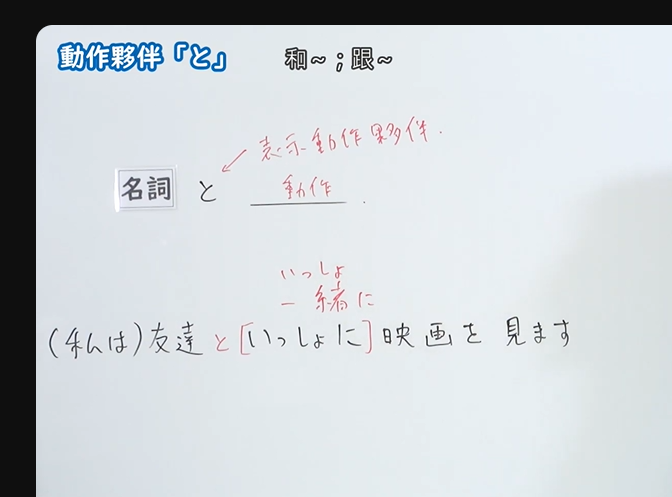 動作夥伴「と」 和~；跟~
表示動作夥伴.
名詞 と 動作.
いっしょ
一緒に
(私は)友達と[いっしょに]映画を見ます